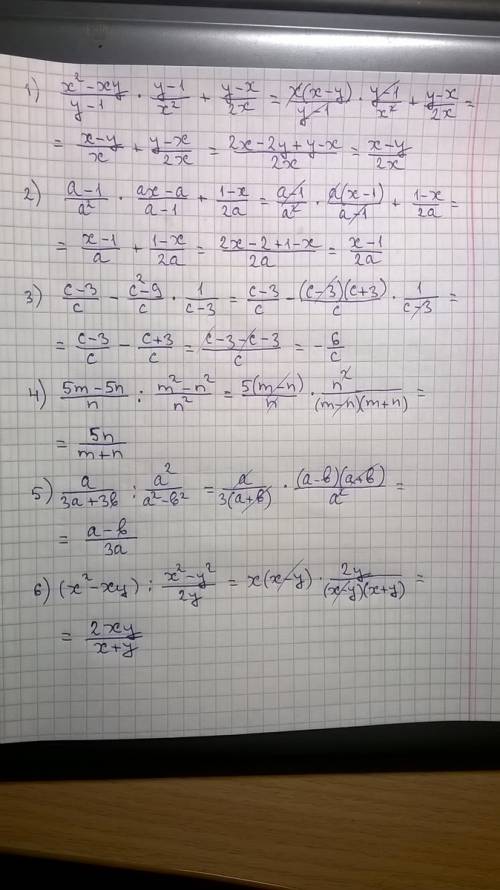 1) (x²-xy)/(y-1) · (y-1)/x² + (y-x)/2x = x(x-y)/(y-1) · (y-1)/x² + (y-x)/2x =
= (x-y)/x + (y-x)/2x = (2x-2y+y-x)/2x = (x-y)/2x
2) (a-1)/a² · (ax-a)/(a-1) + (1-x)/2a = (a-1)/a² · a(x-1)/(a-1) + (1-x)/2a =
= (x-1)/a + (1-x)/2a = (2x-2+1-x)/2a = (x-1)/2a
3) (c-3)/c - (c²-9)/c · 1/(c-3) = (c-3)/c - (c-3)(c+3)/c · 1/(c-3) =
= (c-3)/c - (c+3)/c = (c-3-c-3)/c = -6/c
4) (5m-5n)/n : (m²-n²)/n² = 5(m-n)/n · n²/(m-n)(m+n) =
= 5n/(m+n)
5) a/(3a+3b) : a²/(a²-b²) = a/3(a+b) · (a-b)(a+b)/a² =
= (a-b)/3a
6) (x²-xy) : (x²-y²)/2y = x(x-y) · 2y/(x-y)(x+y) =
= 2xy/(x+y)